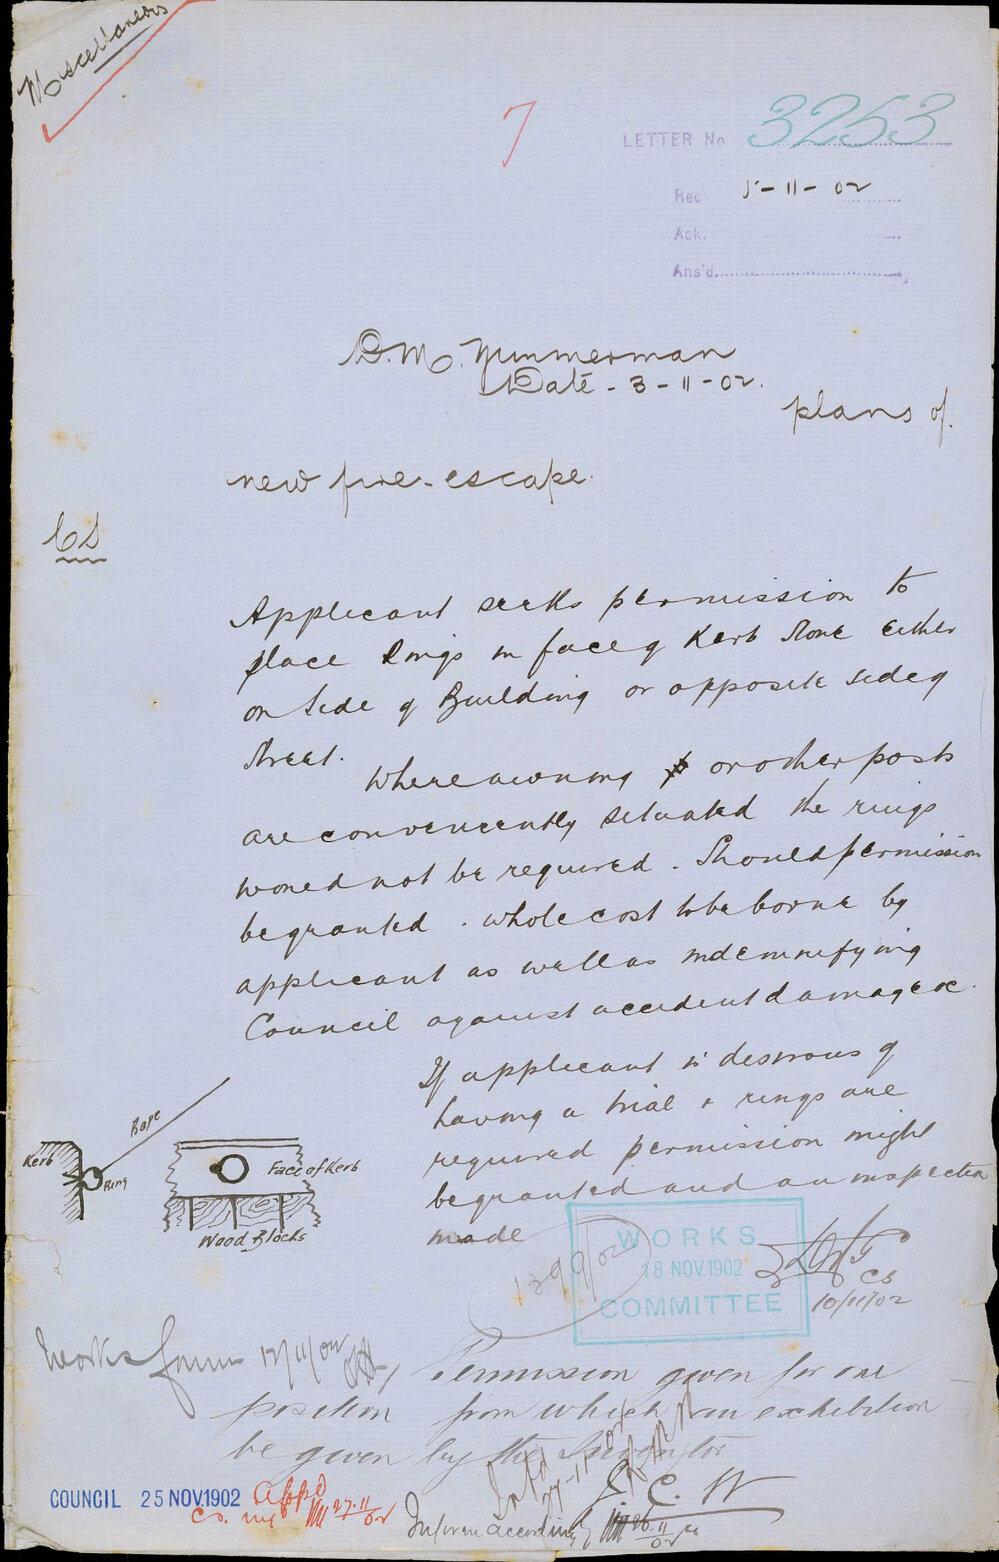 Miscellaneous
7
LETTER No 3253
Rec. 5-11-02
Ack.
Ans'd.
D.M. Zimmerman
Date - 3-11-02.
plans of
new fire-escape.
CS
Applicant seeks permission to
place Rings in face of Kerb Stone either
on side of Building or opposite side of
Street.
Where awning or other posts
are conveniently situated the rings
would not be required. Should permission
be granted. whole cost to be borne by
applicant as well as indemnifying
Council against accident damage &c.
If applicant is desirous of
having a trial & rings are
required permission might
be granted and an inspection
made
Rope
Kerb
Ring
Face of Kerb
Wood Blocks
1399/02
WORKS
18 NOV. 1902
COMMITTEE
CS
10/11/02
Works Comm 12/11/02
Permission given for one
position from which an exhibition
be given by the Inventor
J. C. W
Intd
27-11-02
COUNCIL 25 NOV. 1902 Appd
C.S. 27.11/02
Inform accordingly 26.11/02